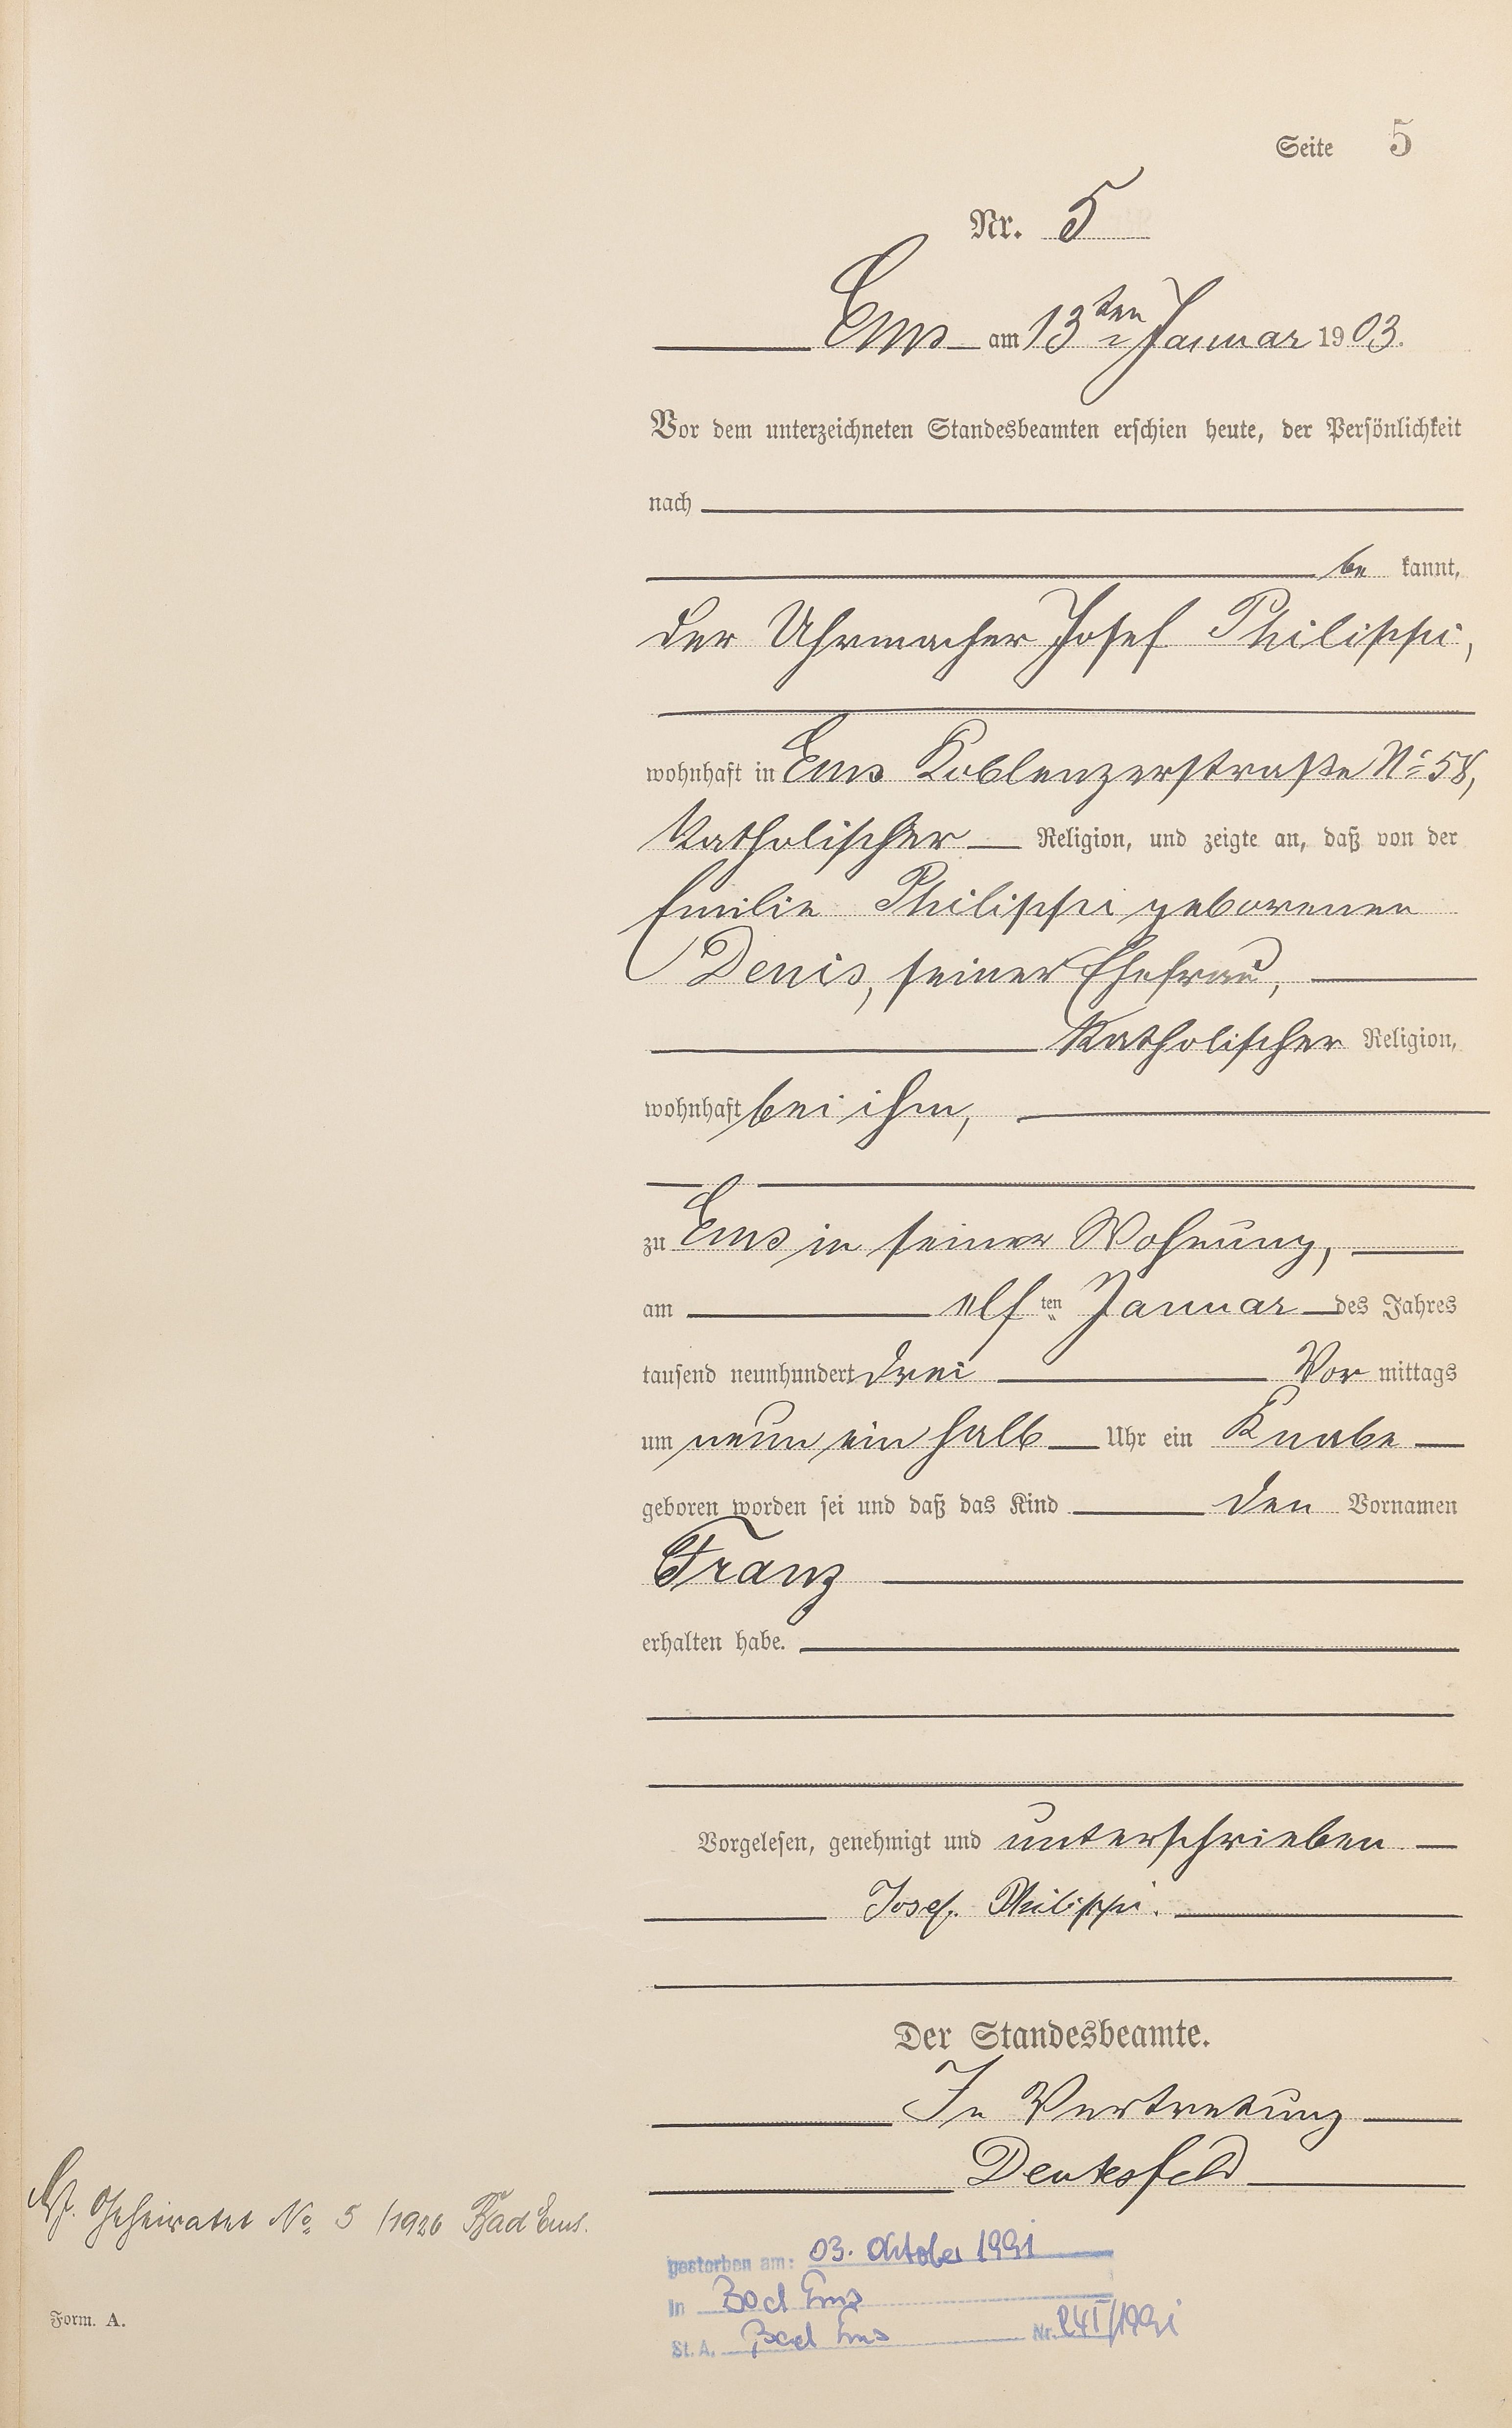 Seite 5
Nr. 5
Ems am 13ten Januar 1903.
Vor dem unterzeichneten Standesbeamten erschien heute, der Persönlichkeit
nach
be kannt,
der Uhrmacher Josef Philippi,
wohnhaft in Ems Koblenzerstraße No 58,
katholischer Religion, und zeigte an, daß von der
Emilie Philippi geborenen
Denis, seiner Ehefrau,
katholischer Religion,
wohnhaft bei ihm,
zu Ems in seiner Wohnung,
am elf ten Januar des Jahres
tausend neunhundert drei Vor mittags
um neun ein halb Uhr ein Knabe
geboren worden sei und daß das Kind den Vornamen
Franz
erhalten habe.
Vorgelesen, genehmigt und unterschrieben
Josef Philippi.
Der Standesbeamte.
In Vertretung
Deutesfeld
Geheiratet No 5 /1926 Bad Ems.
gestorben am: 03. Oktober 1991
in Bad Ems
St. A. Bad Ems Nr. 241/1991
Form. A.